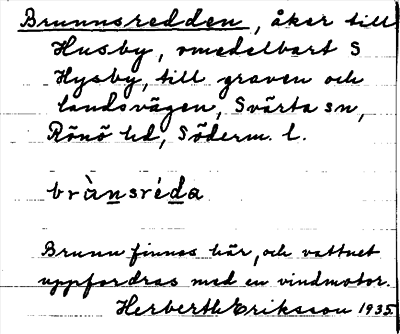 Brunnsredden, åker till
Husby, omedelbart S
Hysby, till graven och
landsvägen, Svärta sn,
Rönö hd, Söderm. l.
brànsréda
Brunn finnes här, och vattnet
uppfordras med en vindmotor.
Herberth Eriksson 1935.